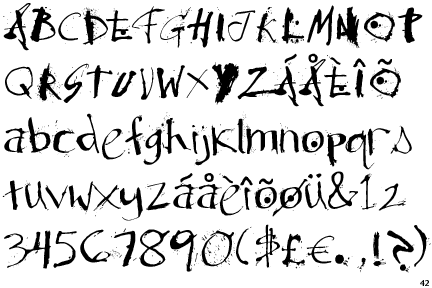 ABCDEFGHIJKLMNOP
QRSTUVWXYZÀÅÈÎÕ
abcdefghijklmnopqrs
tuvwxyzàåèîõøü&12
34567890($£€.,!?)
42